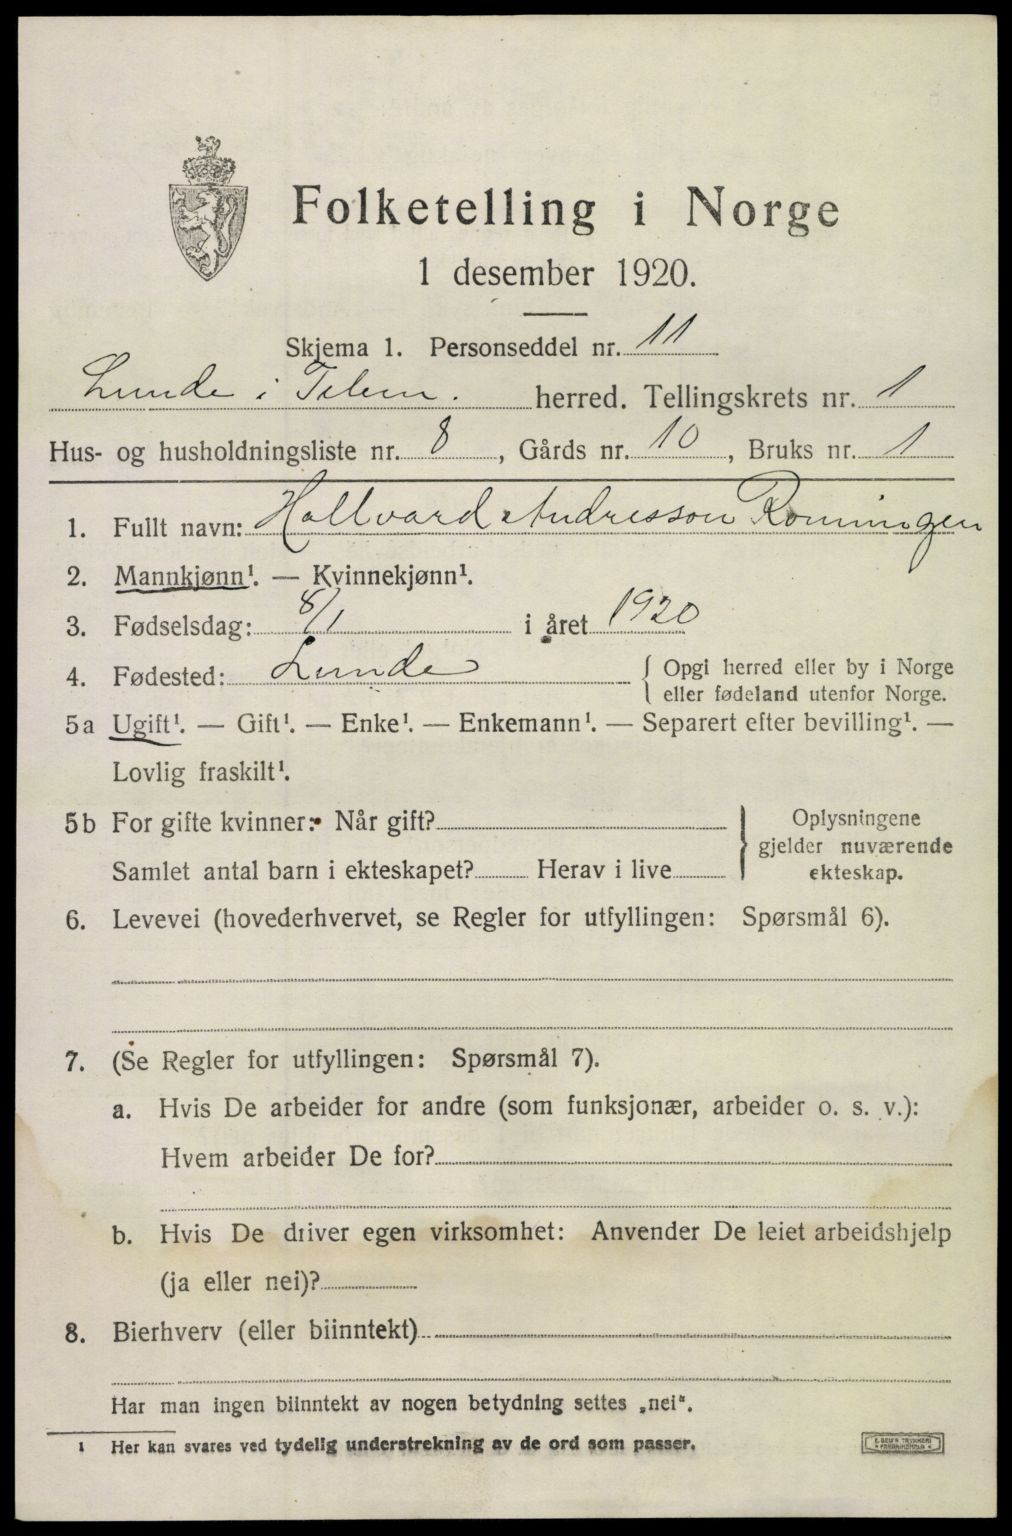 Folketelling i Norge
1 desember 1920.
Skjema 1. Personseddel nr. 11
Lunde i Telem. herred. Tellingskrets nr. 1
Hus- og husholdningsliste nr. 8, Gårds nr. 10, Bruks nr. 1
1. Fullt navn: Hallvard Andresson Romningen
2. Mannkjønn¹. — Kvinnekjønn¹.
3. Fødselsdag: 8/1 i året 1920
4. Fødested: Lunde { Opgi herred eller by i Norge
eller fødeland utenfor Norge.
5a Ugift¹. — Gift¹. — Enke¹. — Enkemann¹. — Separert efter bevilling¹. —
Lovlig fraskilt¹.
5b For gifte kvinner: Når gift? } Oplysningene
gjelder nuværende
Samlet antal barn i ekteskapet? Herav i live ekteskap.
6. Levevei (hovederhvervet, se Regler for utfyllingen: Spørsmål 6).
7. (Se Regler for utfyllingen: Spørsmål 7).
a. Hvis De arbeider for andre (som funksjonær, arbeider o. s. v.):
Hvem arbeider De for?
b. Hvis De driver egen virksomhet: Anvender De leiet arbeidshjelp
(ja eller nei)?
8. Bierhverv (eller biinntekt)
Har man ingen biinntekt av nogen betydning settes „nei“.
¹ Her kan svares ved tydelig understrekning av de ord som passer.